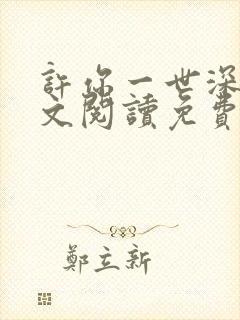 許你一世深
文閱讀免費
鄭立新